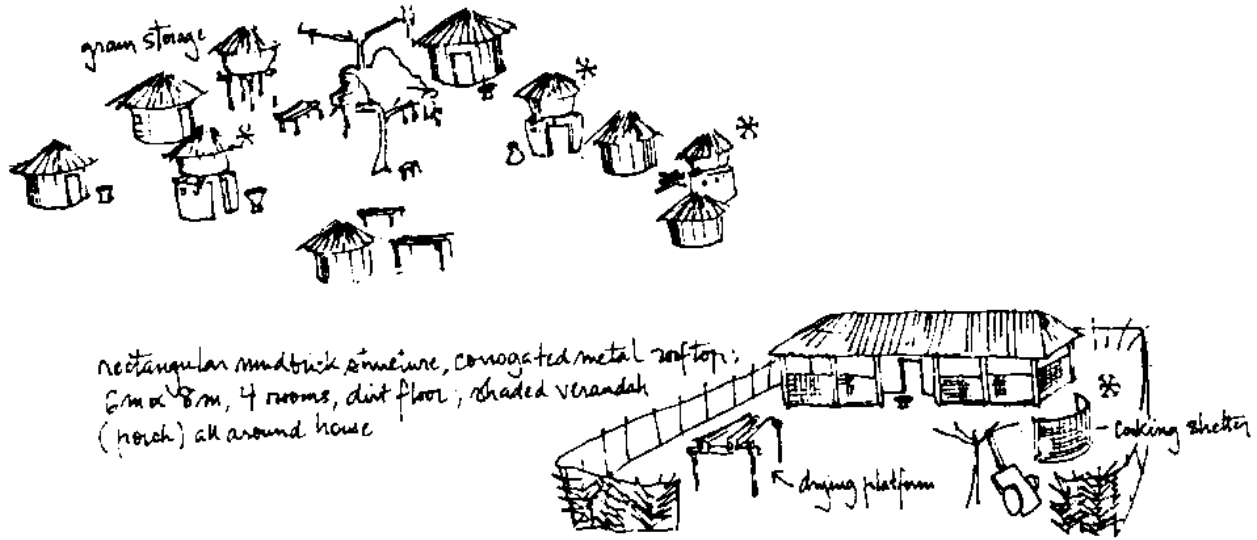 grain storage
rectangular mudbrick structure, corrogated metal rooftop;
6m x 8m, 4 rooms, dirt floor; shaded verandah
(porch) all around house
cooking shelter
drying platform